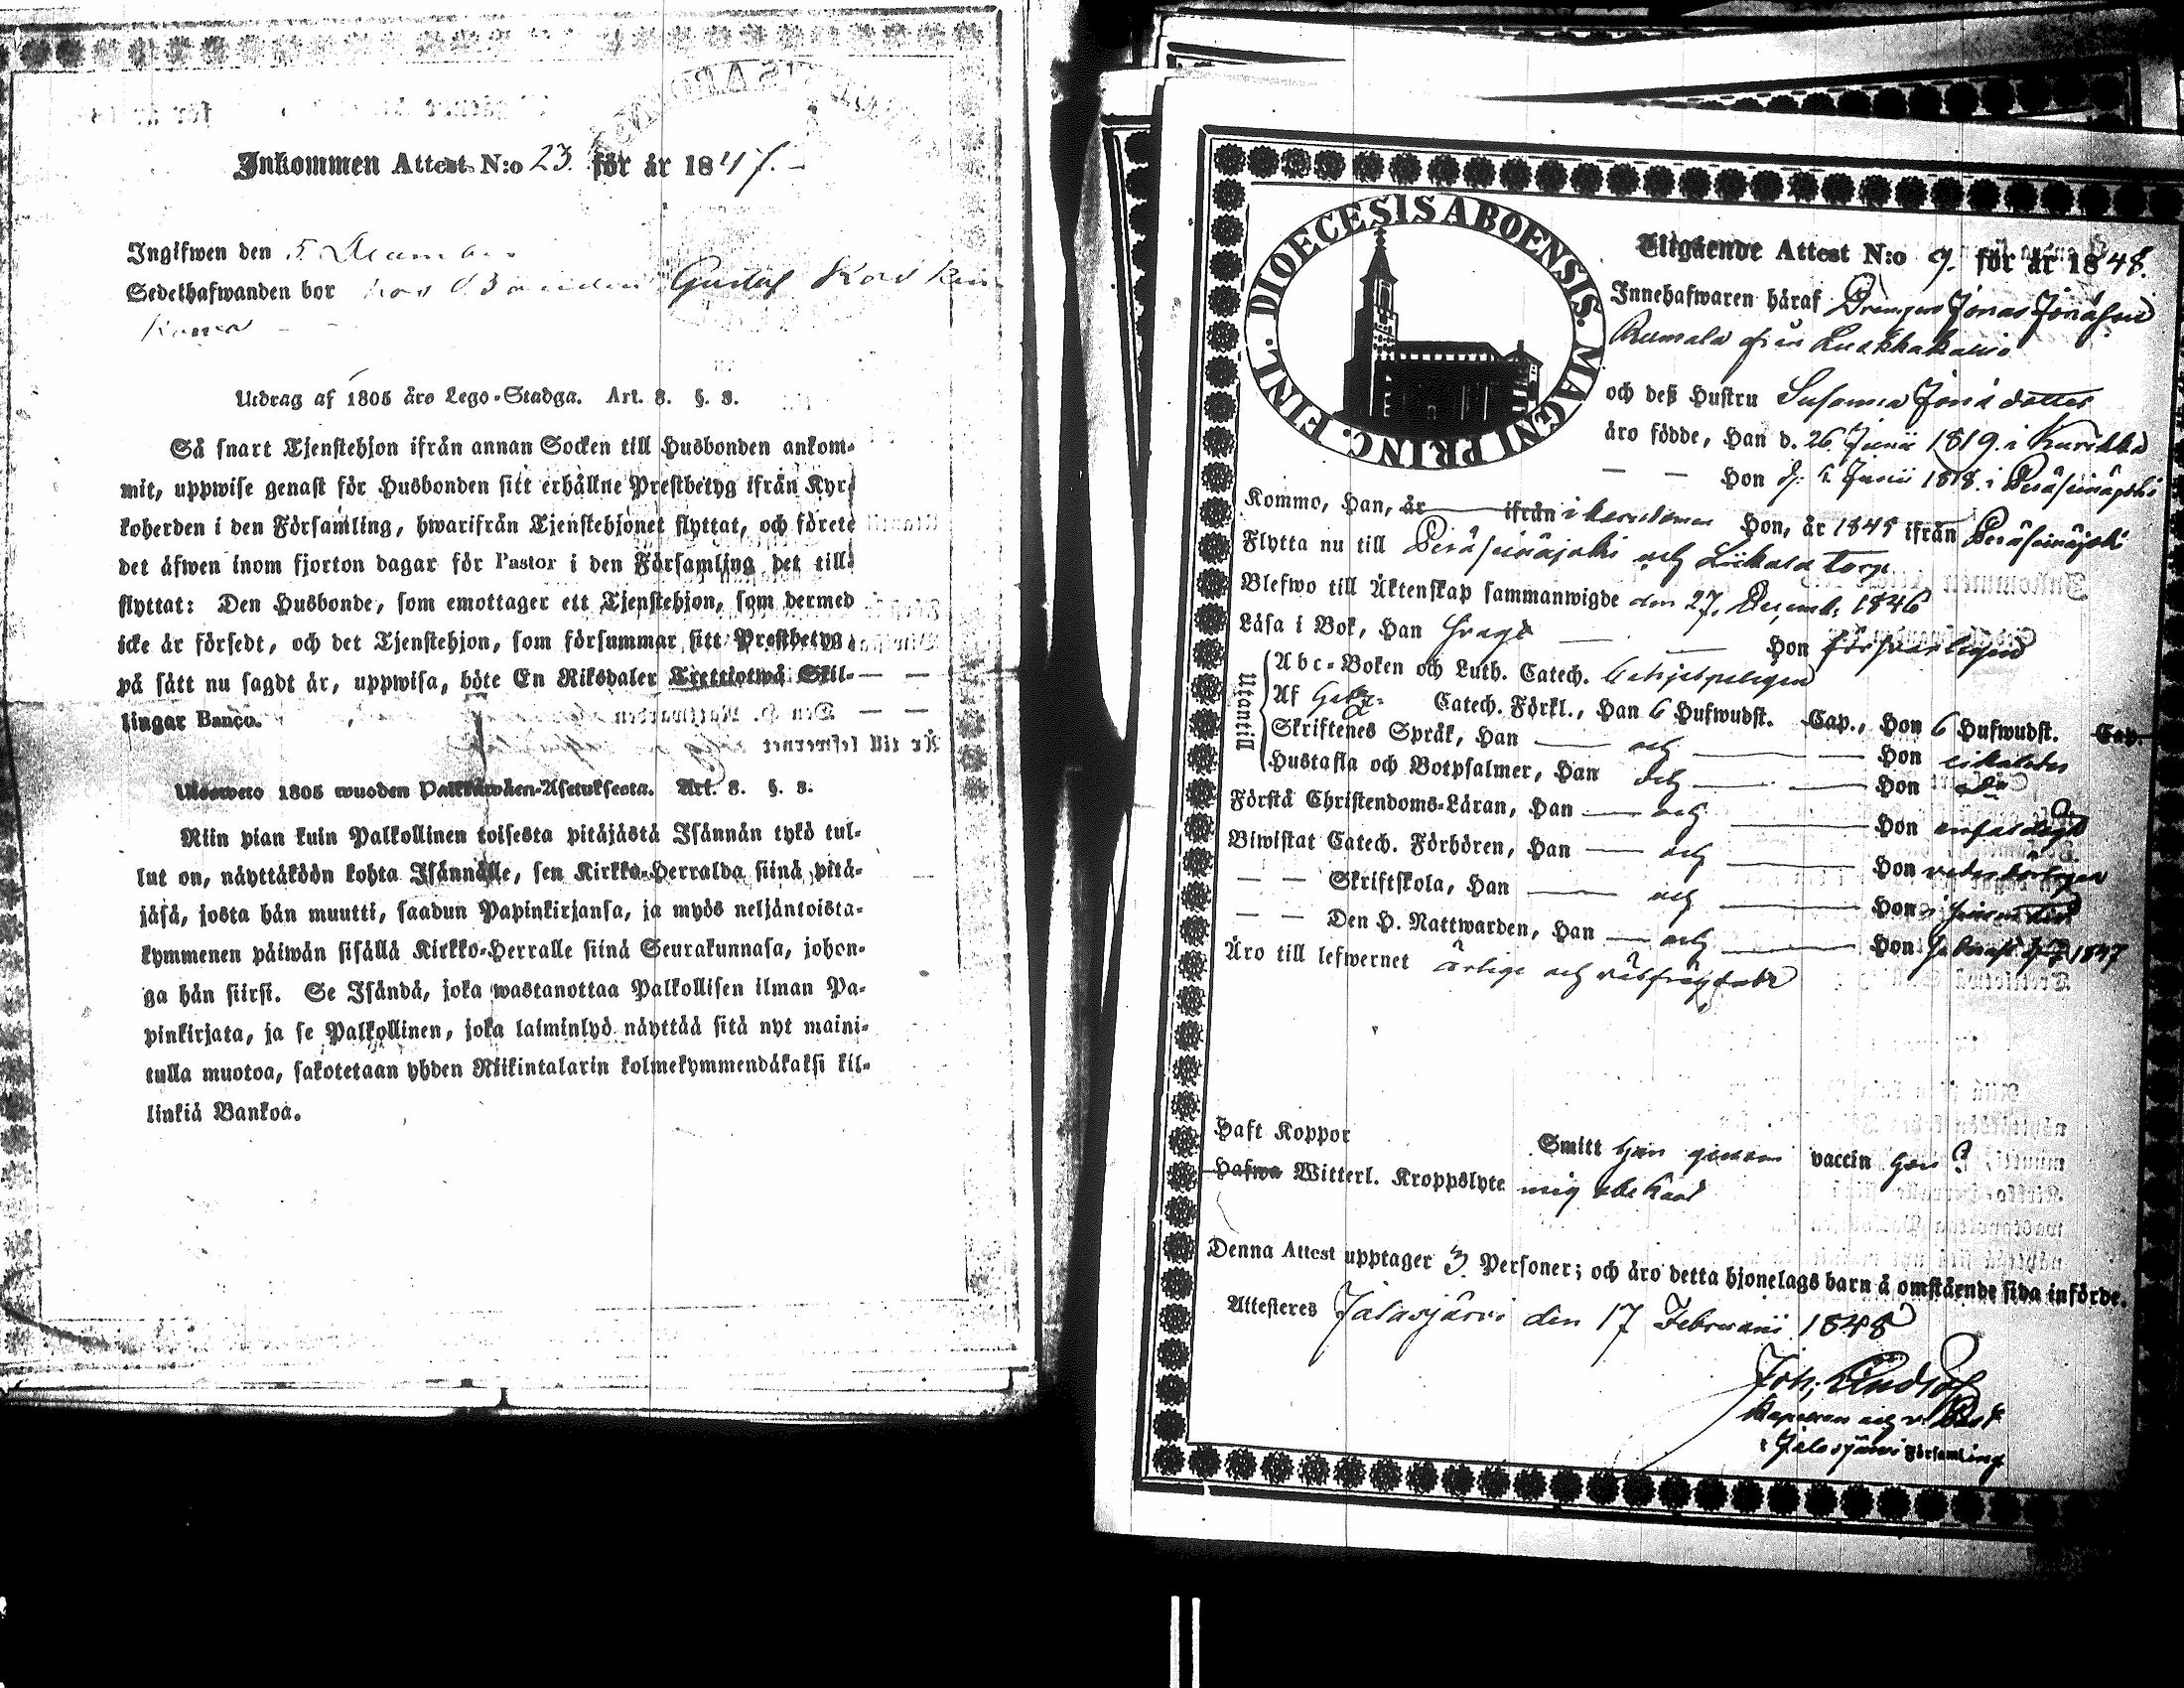 Inkommen Attest N:o 23. för år 1847.
Ingifwen den 5 December
Sedelhafwanden bor hos Bonden Gustaf
Utdrag af 1805 års Lego-Stadga. Art. 8. §. 8.
Så snart Tjenstehjon ifrån annan Socken till Husbonden ankom-
mit, uppwise genast för Husbonden sitt erhållne Prestbetyg ifrån Kyr-
koherden i den Församling, hwarifrån Tjenstehjonet flyttat, och förete
det äfwen inom fjorton dagar för Pastor i den Församling det till-
flyttat: Den Husbonde, som emottager ett Tjenstehjon, som dermed
icke är försedt, och det Tjenstehjon, som försummar sitt Prestbetyg,
på sätt nu sagdt är, uppwisa, böte En Riksdaler Trettiotwå Skil-
lingar Banco.
Ulosweto 1805 wuoden Palkkawäen-Asetuksesta. Art. 8. §. 8.
Niin pian kuin Palkollinen toisesta pitäjästä Isännän tykö tul-
lut on, näyttäköön kohta Isännälle, sen Kirkko-Herralda siinä pitä-
jäsä, josta hän muutti, saadun Papinkirjansa, ja myös neljäntoista-
kymmenen päiwän sisällä Kirkko-Herralle siinä Seurakunnasa, johon-
ga hän siirsi. Se Isändä, joka wastanottaa Palkollisen ilman Pa-
pinkirjata, ja se Palkollinen, joka laiminlyö näyttää sitä nyt maini-
tulla muotoa, sakotetaan yhden Riikintalarin kolmekymmendäkaksi kil-
linkiä Bankoa.
DIOECESIS ABOENSIS. MAGNI PRINC. FINL.
Utgående Attest N:o 9. för år 1848.
Innehafwaren häraf Drengen Jonas Jonasson
Rumala ifrån Luukkakallio
och deß Hustru Susanna Jonä dotter
äro födde, Han d. 26 Junii 1819. i Kurikka
— — Hon d. 5 Junii 1818. i Peräseinäjoki
Kommo, Han, år ifrån i barndomen Hon, år 1845 ifrån Peräseinäjoki
Flytta nu till Peräseinäjoki och Liikala torp
Blefwo till Äktenskap sammanwigde den 27. Decemb. 1846
Läsa i Bok, Han svagt — — Hon försvarligen
Utantill
Abc-Boken och Luth. Catech. behjelpeligen
Af Catech. Förkl., Han 6 Hufwudst. Cap., Hon 6 Hufwudst. Cap.
Skriftenes Språk, Han — och — Hon
Hustafla och Botpsalmer, Han och — Hon
Förstå Christendoms-Läran, Han — och — Hon enfaldigt
Biwistat Catech. Förhören, Han — och — Hon vederbörligen
— — Skriftskola, Han — och — Hon
— — Den H. Nattwarden, Han — och — Hon 1847
Äro till lefwernet ärlige och wälfrägdade
Haft Koppor Smitt han genom vaccin hon ?
Hafwa Witterl. Kroppslyte mig obekant
Denna Attest upptager 3. Personer; och äro detta hjonelags barn å omstående sida införde.
Attesteres Jalasjärvi den 17 Februarii 1848
Joh:
Kapellan och v. Past.
i Jalasjärvi Församling